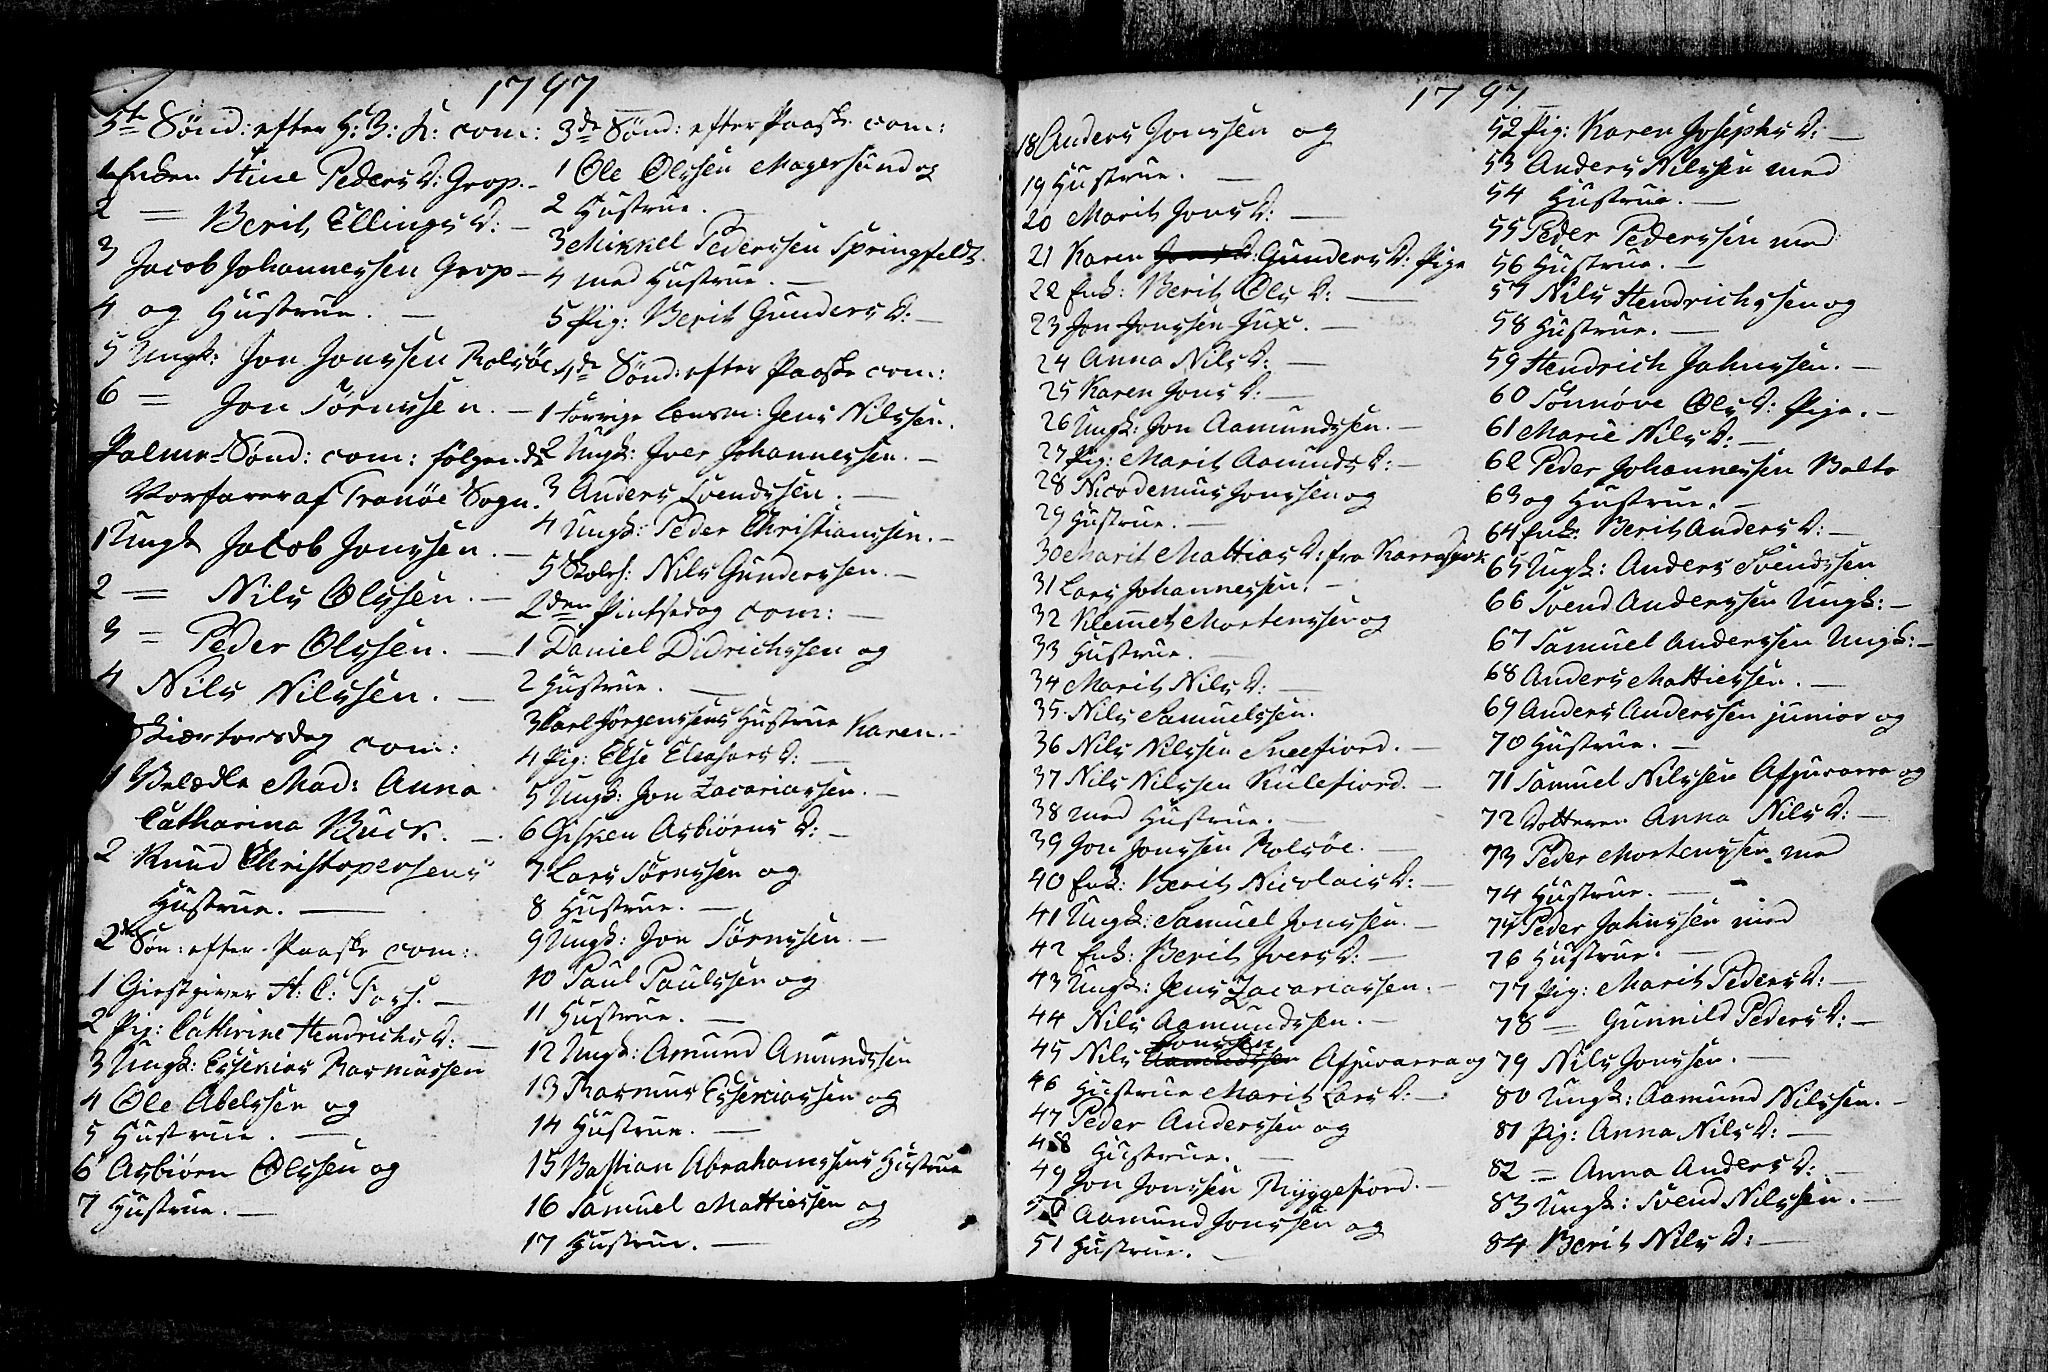 1797
5te Sønd: efter H: 3: K: com:
1 Enken Stine Peders D: Grop. –
2 = Berit Ellings D: –
3 Jacob Johannessen Grop –
4 og Hustrue. –
5 Ungk: Jon Jonssen Rolsøe
6 = Jon Sørnssen. –
Palme-Sønd: com: følgende
Vorfarer af Tranøe Sogn.
1 Ungk Jacob Jonssen. –
2 = Nils Olssen. –
3 = Peder Olssen. –
4 Nils Nilssen. –
Skiærtorsdag com:
1 Velædle Mad: Anna
Catharina Buck. –
2 Knud Christopersens
Hustrue. –
2de Søn: efter Paaske com:
1 Giestgiver H: C: Fors. –
2 Pig: Cathrine Hendrichs D: –
3 Ungk: Essekias Rasmussen
4 Ole Abelssen og
5 Hustrue. –
6 Asbiørn Olssen og
7 Hustrue. –
3de Sønd: efter Paaske com:
1 Ole Olssen Magersund og
2 Hustrue.
3 Mikkel Pederssen Springfeldt.
4 med Hustrue. –
5 Pig: Berit Gunders D: –
4de Sønd: efter Paaske com:
1 forrige Lensm: Jens Nilssen.
2 Ungk: Iver Johannessen. –
3 Anders Svendssen. –
4 Ungk: Peder Christianssen. –
5 Skolh: Nils Gunderssen. –
2den Pintsedag com: –
1 Daniel Didrichssen og
2 Hustrue. –
3 Carl Jørgenssens Hustrue Karen. –
4 Pig: Else Eleasars D: –
5 Ungk: Jon Zacariassen. –
6 Gisken Asbiørns D: –
7 Lars Sørnssen og
8 Hustrue. –
9 Ungk: Jon Sørnssen. –
10 Paul Paulssen og
11 Hustrue. –
12 Ungk: Amund Amundssen
13 Rasmus Essekiassen og
14 Hustrue. –
15 Bastian Abrahamssens Hustrue
16 Samuel Mattiessen og
17 Hustrue. –
1797
18 Anders Jonssen og
19 Hustrue. –
20 Marit Jons D: –
21 Karen Jons D: Gunders D: Pige
22 Enk: Berit Ols D: –
23 Jon Jonssen Jux. –
24 Anna Nils D: –
25 Karen Jons D: –
26 Ungk: Jon Aamundssen. –
27 Pig: Marit Aamunds D: –
28 Nicodemus Jonssen og
29 Hustrue. –
30 Marit Mattias D: fra Karrasjock
31 Lars Johannessen. –
32 Klemmet Mortenssen og
33 Hustrue. –
34 Marit Nils D: –
35 Nils Samuelssen.
36 Nils Nilssen Sneefiord. –
37 Nils Nilssen Kulefiord. –
38 med Hustrue. –
39 Jon Jonssen Rolsøe. –
40 Enk: Berit Nicolais D: –
41 Ungk: Samuel Jonssen. –
42 Enk: Berit Ivers D: –
43 Ungk: Jens Zacariassen. –
44 Nils Aamundssen. –
Jonssen
45 Nils Aamundssen Afjuvarra og
46 Hustrue Marit Lars D: –
47 Peder Anderssen og
48 Hustrue. –
49 Jon Jonssen Ryggefiord. –
50 Aamund Jonssen og
51 Hustrue. –
52 Pig: Karen Josephs D: –
53 Anders Nilssen med
54 Hustrue. –
55 Peder Pederssen med
56 Hustrue. –
57 Nils Hendrichssen og
58 Hustrue. –
59 Hendrich Johnssen. –
60 Sønnøve Ols D: Pige. –
61 Marie Nils D: –
62 Peder Johannessen Balto
63 og Hustrue. –
64 Enk: Berit Anders D: –
65 Ungk: Anders Svendssen
66 Svend Anderssen Ungk: –
67 Samuel Anderssen Ungk: –
68 Anders Mattiessen. –
69 Anders Anderssen junior og
70 Hustrue. –
71 Samuel Nilssen Afjuvarra og
72 Dotteren Anna Nils D: –
73 Peder Mortenssen med
74 Hustrue. –
75 Peder Johnssen med
76 Hustrue. –
77 Pig: Marit Peders D: –
78 = Gunnild Peders D: –
79 Nils Jonssen. –
80 Ungk: Aamund Nilssen. –
81 Pig: Anna Nils D: –
82 = Anna Anders D: –
83 Ungk: Svend Nilssen. –
84 Berit Nils D: –